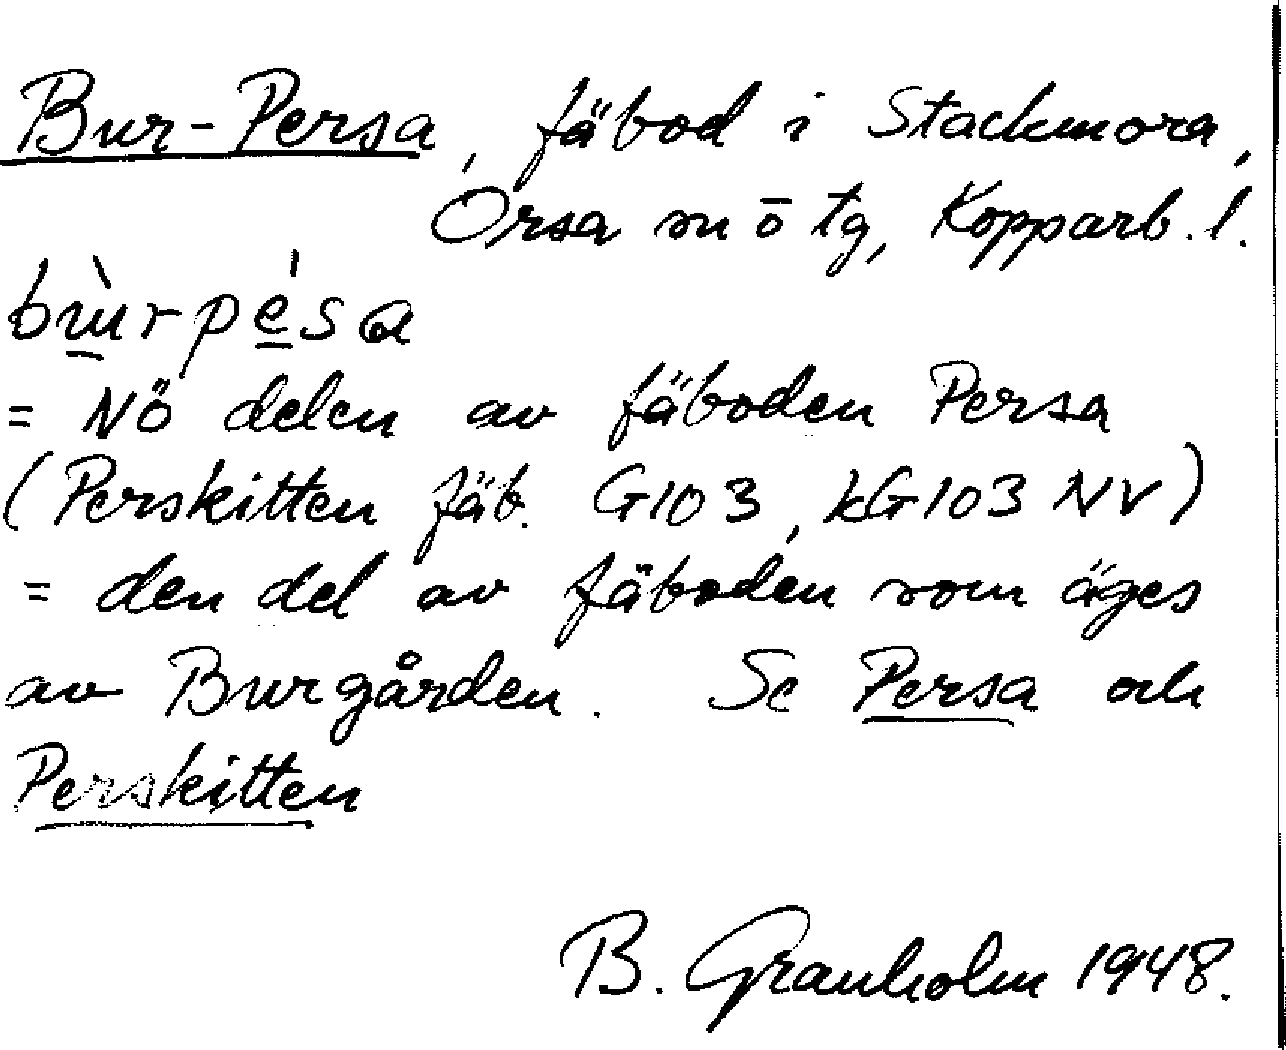 Bur-Persa, fäbod i Stackmora,
Orsa sn o tg, Kopparb. l.
bùrpésa
= NÖ delen av fäboden Persa
(Perskitten fäb. G103, kG103 NV)
= den del av fäboden som äges
av Burgården. Se Persa och
Perskitten
B. Granholm 1948.